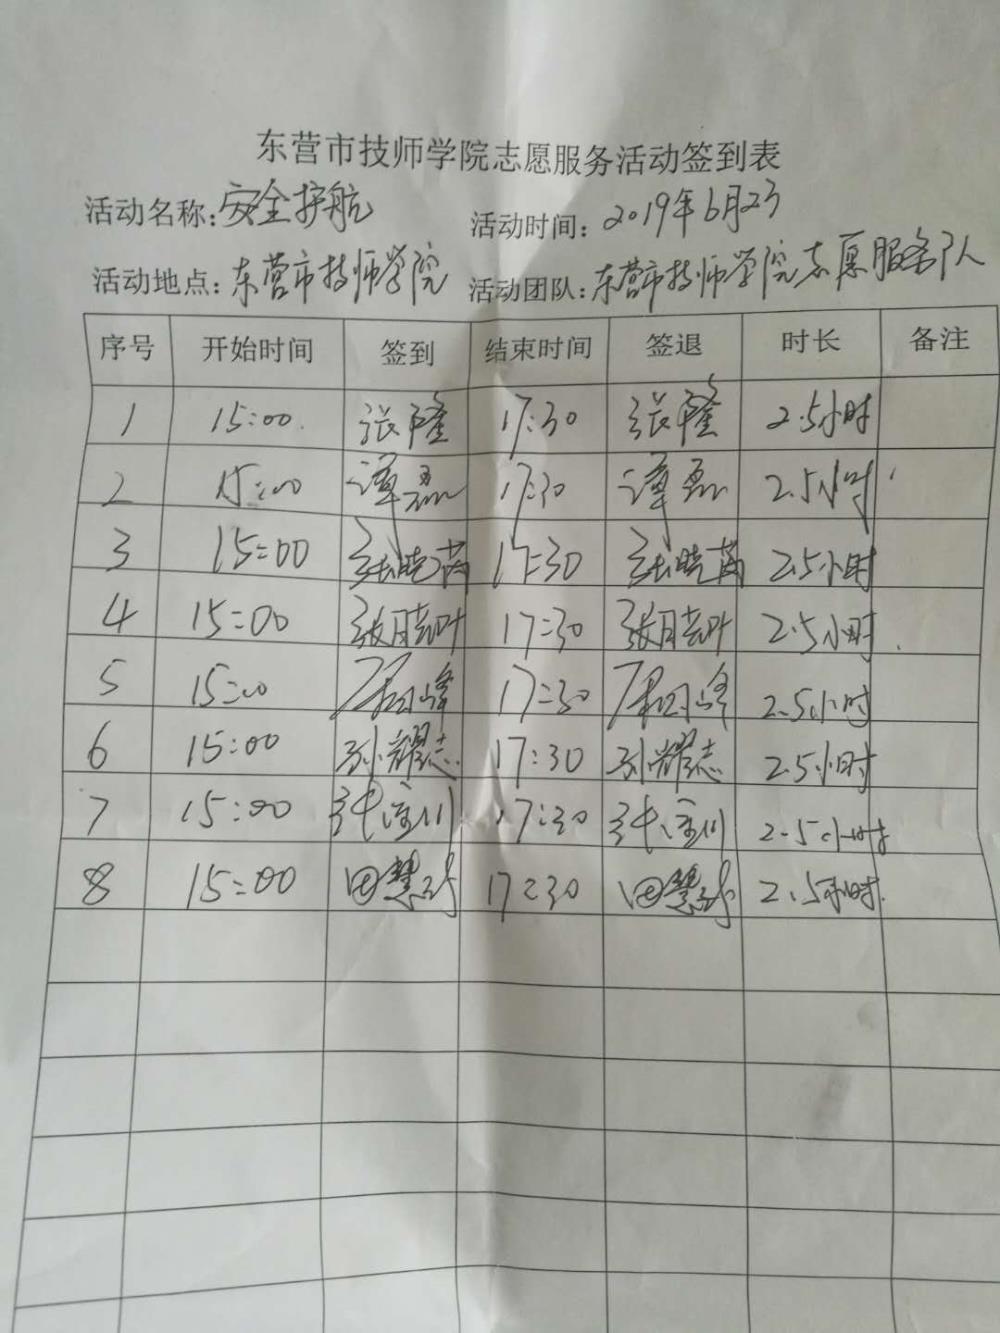 东营市技师学院志愿服务活动签到表
活动名称:安全护航 活动时间:2019年6月23
活动地点:东营市技师学院 活动团队:东营市技师学院志愿服务队
序号 开始时间 签到 结束时间 签退 时长 备注
1 15:00 张隆 17:30 张隆 2.5小时
2 15:00 谭磊 17:30 谭磊 2.5小时
3 15:00 张晓芮 17:30 张晓芮 2.5小时
4 15:00 张月芸叶 17:30 张月芸叶 2.5小时
5 15:00 17:30 2.5小时
6 15:00 孙耀志 17:30 孙耀志 2.5小时
7 15:00 17:30 2.5小时
8 15:00 田慧 17:30 田慧 2.5小时